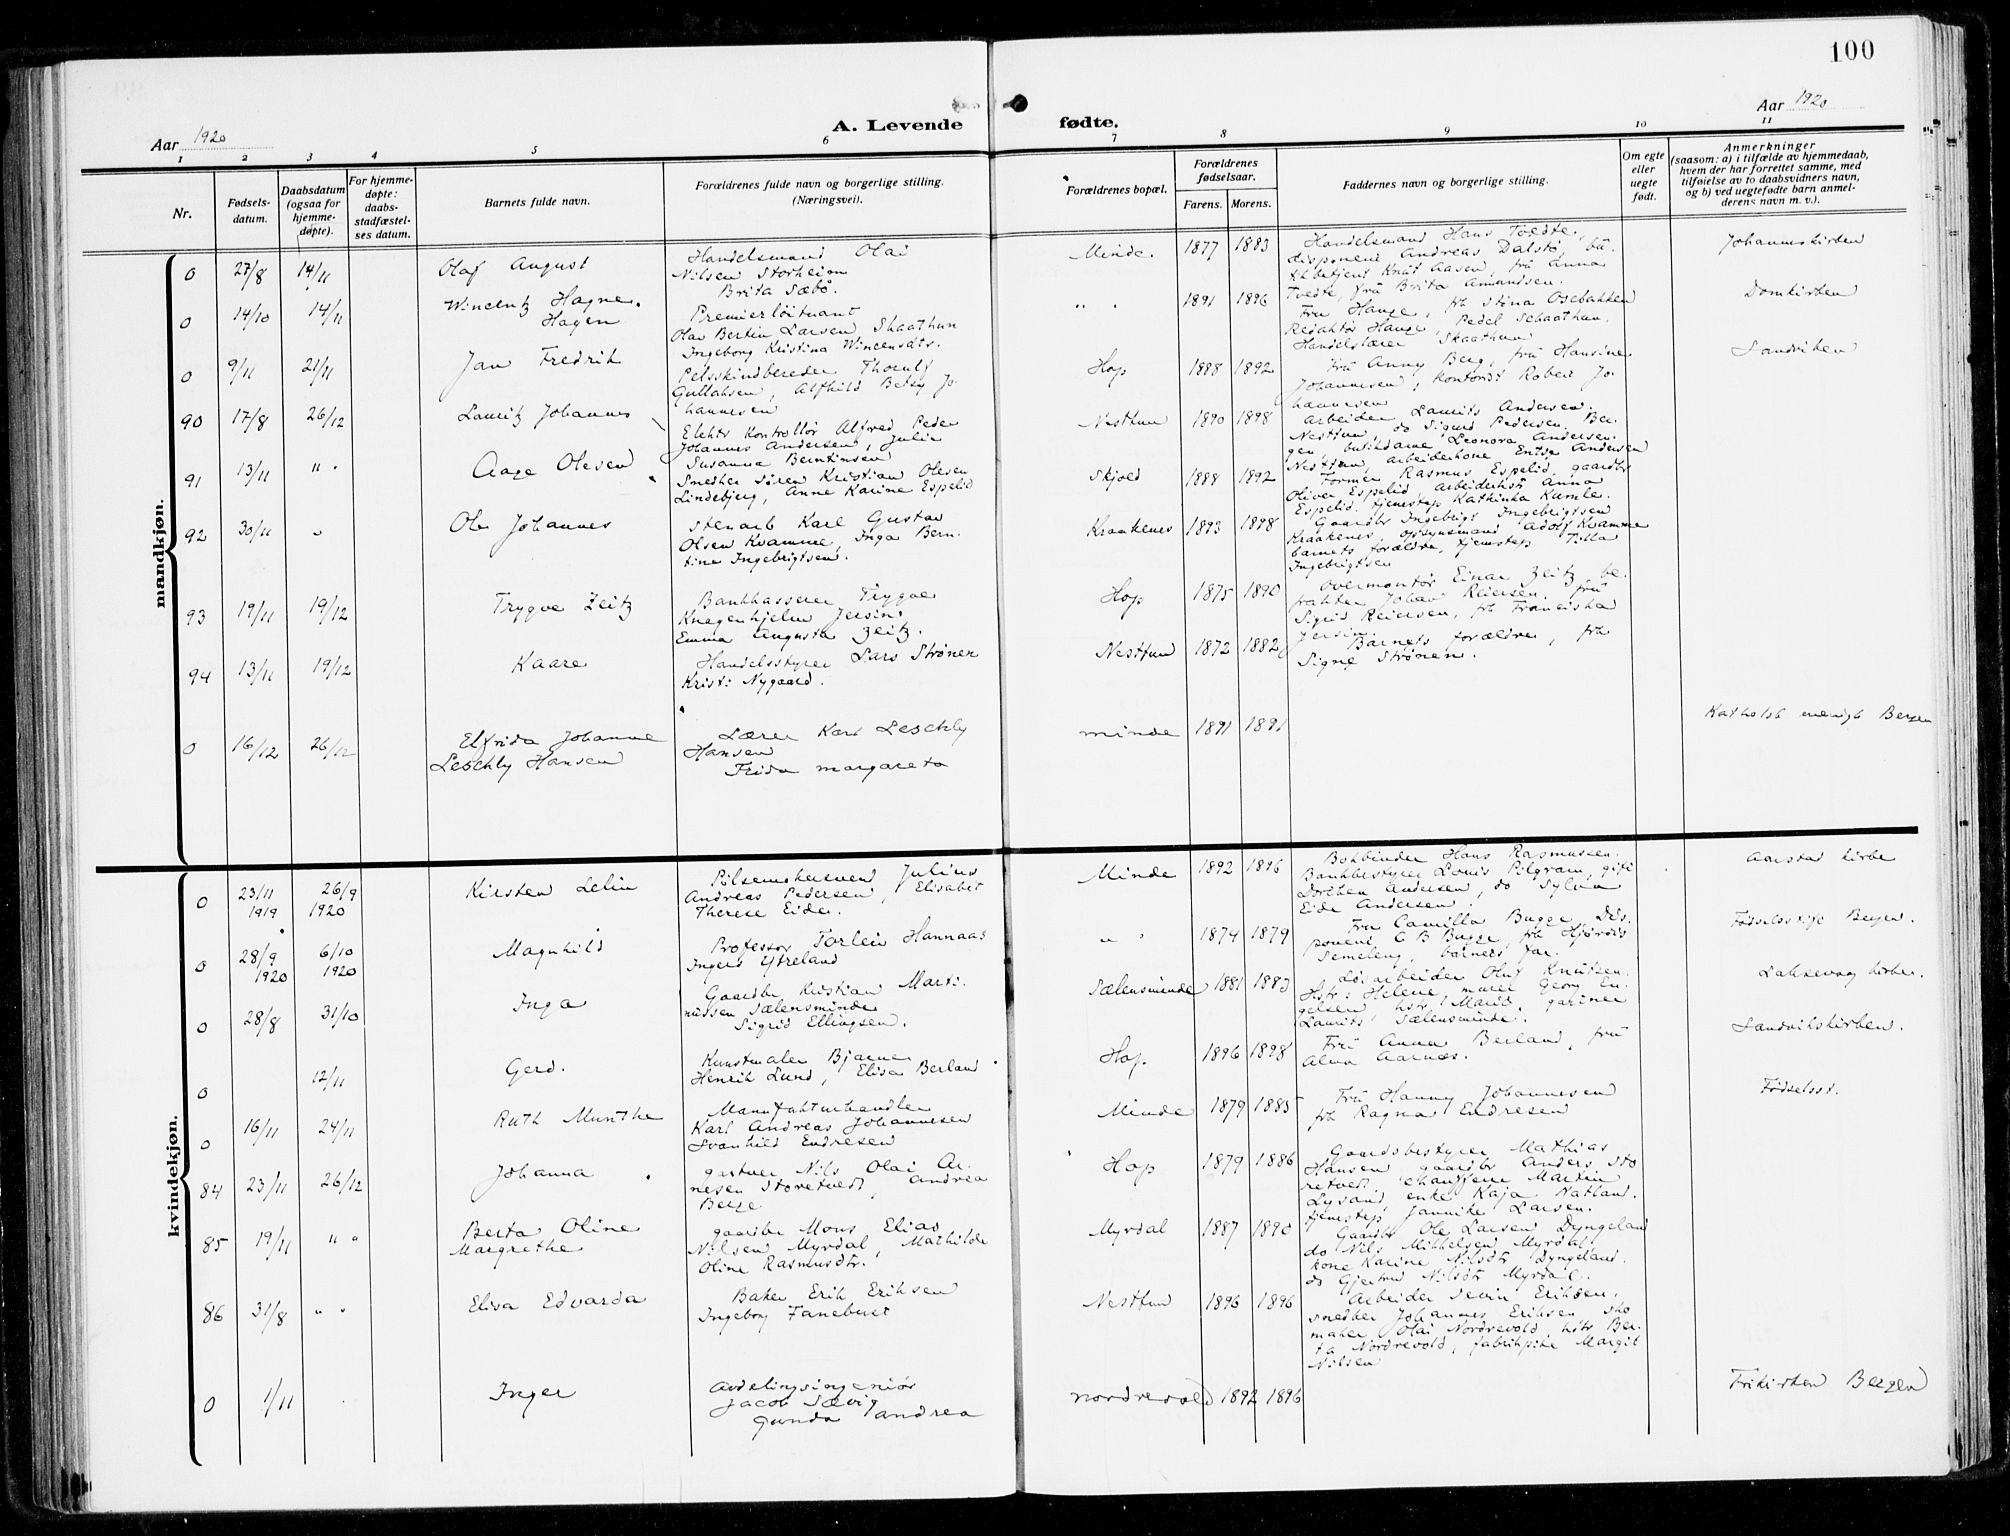 100
Aar 1920
A. Levende fødte.
Aar 1920
1 2 3 4 5 6 7 8 9 10 11
Nr.
Fødsels-
datum.
Daabsdatum
(ogsaa for
hjemme-
døpte).
For hjemme-
døpte:
daabs-
stadfæstel-
ses datum.
Barnets fulde navn.
Forældrenes fulde navn og borgerlige stilling.
(Næringsvei).
Forældrenes bopæl.
Forældrenes
fødselsaar.
Farens. Morens.
Faddernes navn og borgerlige stilling.
Om egte
eller
uegte
født.
Anmerkninger
(saasom: a) i tilfælde av hjemmedaab,
hvem der har forrettet samme, med
tilføielse av to daabsvidners navn,
og b) ved uegtefødte barn anmel-
derens navn m. v.).
mandkjøn.
0 27/8 14/11 Olaf August
Handelsmand Olai
Nilsen Storheim
Brita Sæbø.
Minde. 1877 1883
Handelsmand Hans Tvedte,
disponent Andreas Dalstø, bu
tikbetjent Knut Aasen, fru Anna
Tvedte, fru Brita Amundsen.
Johanneskirken
0 14/10 14/11 Wincentz Hagne.
Hagen
Premierløitnant
Olav Bertin Larsen Skaathun
Ingeborg Kristina Wincensdtr.
" . 1891 1896
Fru Hauge, frk Stina Osebakken
Redaktør Hauge, Pedel Schaathun.
Handelslærer Skaathun
Domkirken
0 9/11 21/11 Jan Fredrik
Pelsskindbereder Thorulf
Gullaksen, Alfhild Betsy Jo
hannesen
Hop 1888 1892
Fru Anny Berg, fru Hansine
Johannesen, kontorist Robert Jo
hannesen
Sandviken
90 17/8 26/12 Lauritz Johannes
Elektr Kontrollør Alfred Peder
Johannes Andersen, Julie
Susanna Berntinsen
Nesttun 1890 1898
Arbeider Laurits Andersen,
Nesttun, do Sigurd Pedersen, Ber-
gen, butikdame Leonora Andersen
Nesttun, arbeiderkone Entse Andersen
91 13/11 " " Aage Olesen
Snedker Søren Kristian Olesen
Lindebjerg, Anne Karine Espelid
Skjold 1888 1892
Former Rasmus Espelid, gaardbr
Oliver Espelid, Arbeiderkst Anna
Espelid, tjenstep Kathinka Kumle.
92 30/11 " Ole Johannes
Stenarb Karl Gustav
Olsen Kvamme, Inga Bern-
tine Ingebrigtsen.
Kraakenes 1893 1898
Gaardbr Ingebrigt Ingebrigtsen
Kraakenes, opsynsmand Adolf Kvamme
barnets forældre, tjenstep Tilla
Ingebrigtsen
93 19/11 19/12 Trygve Zeitz
Bankkasserer Trygve
Knagenhjelm Jersin
Emma Augusta Zeitz.
Hop 1875 1890
Overmontør Einar Zeitz, be-
frakter Johan Reiersen, fru
Sigrid Reiersen, frk Franciska
Jersin.
94 13/11 19/12 Kaare
Handelsstyrer Lars Strønen
Kristi Nygaard.
Nesttun 1872 1882
Barnets forældre, frk
Signe Strønen.
0 16/12 26/12 Elfrida Johanne
Leschly Hansen
Lærer Karl Leschly
Hansen
Frida Margareta
Minde 1891 1891
Katholsk menigh Bergen
kvindekjøn.
0 23/11 1919 26/9 1920 Kirsten Lelin
Pølsemakersvend Julius
Andreas Pedersen, Elisabet
Therese Eide.
Minde 1892 1896
Bokbinder Hans Rasmussen.
Bankbestyrer Louis Pilgram, gift
Dorthea Andersen, do Sylvia
Eide Andersen.
Aarstad kirke
0 28/9 1920 6/10 1920 Magnhild
Professor Torleiv Hannaas
Ingerd Ytreland
" " 1874 1879
Fru Camilla Bugge, Dis-
ponent C B Bugge, frk Hjørdis
Semeleng, barnets far.
Fødselsstift Bergen.
0 28/8 31/10 Inga
Gaardbr Kristian Marti-
nussen Sælensminde
Sigrid Ellingsen.
Sælensminde 1881 1883
Løsarbeider Oluf Knutsen.
Hstr: Helene, murer Georg En-
gelsen, hstr Marie, gartner
Laurits Sælensminde.
Laksevaag kirke.
0 12/11 Gerd.
Kunstmaler Bjarne
Henrik Lund, Elisa Berland.
Hop. 1896 1898
Fru Anna Berland, fru
Alma Aarnæs.
Sandvikskirken.
0 16/11 24/11 Ruth Munthe
Manufakturhandler
Karl Andreas Johannesen
Svanhild Endresen
Minde 1879 1885
Fru Hanny Johannesen
frk Ragna Endresen
Fødselsst.
84 23/11 26/12 Johanna
gartner Nils Olai Ar-
nesen Storetvedt, Andrea
Berge
Hop 1879 1886
Gaardsbestyrer Mathias
Hansen, gaardbr Anders Sto
retvedt, chauffør Martin
Lysand, enke Kaja Natland.
tjenstep Jannike Larsen.
85 19/11 " " Berta Oline
Margrethe
gaardbr Mons Elias
Nilsen Myrdal, Mathilde
Oline Rasmusdtr.
Myrdal 1887 1890
Gaardbr Ole Larsen Dyngeland
do Nils Mikkelsen Myrdal,
kone Karine Nilsdtr Dyngeland.
do Gjertrud Nilsdtr Myrdal.
86 31/8 " " Elisa Edvarda
Baker Erik Eriksen
Ingeborg Fanebust
Nesttun 1896 1896
Arbeider Sevrin Eriksen,
snedker Johannes Eriksen, sko
maker Olai Nordrevold, hstr Ber-
ta Nordrevold, fabrikpike Margit
Nilsen
0 1/11 Inger
Avdelingsingeniør
Jacob Sævig
Gunda Andrea
Nordrevold 1892 1896
Frikirken Bergen